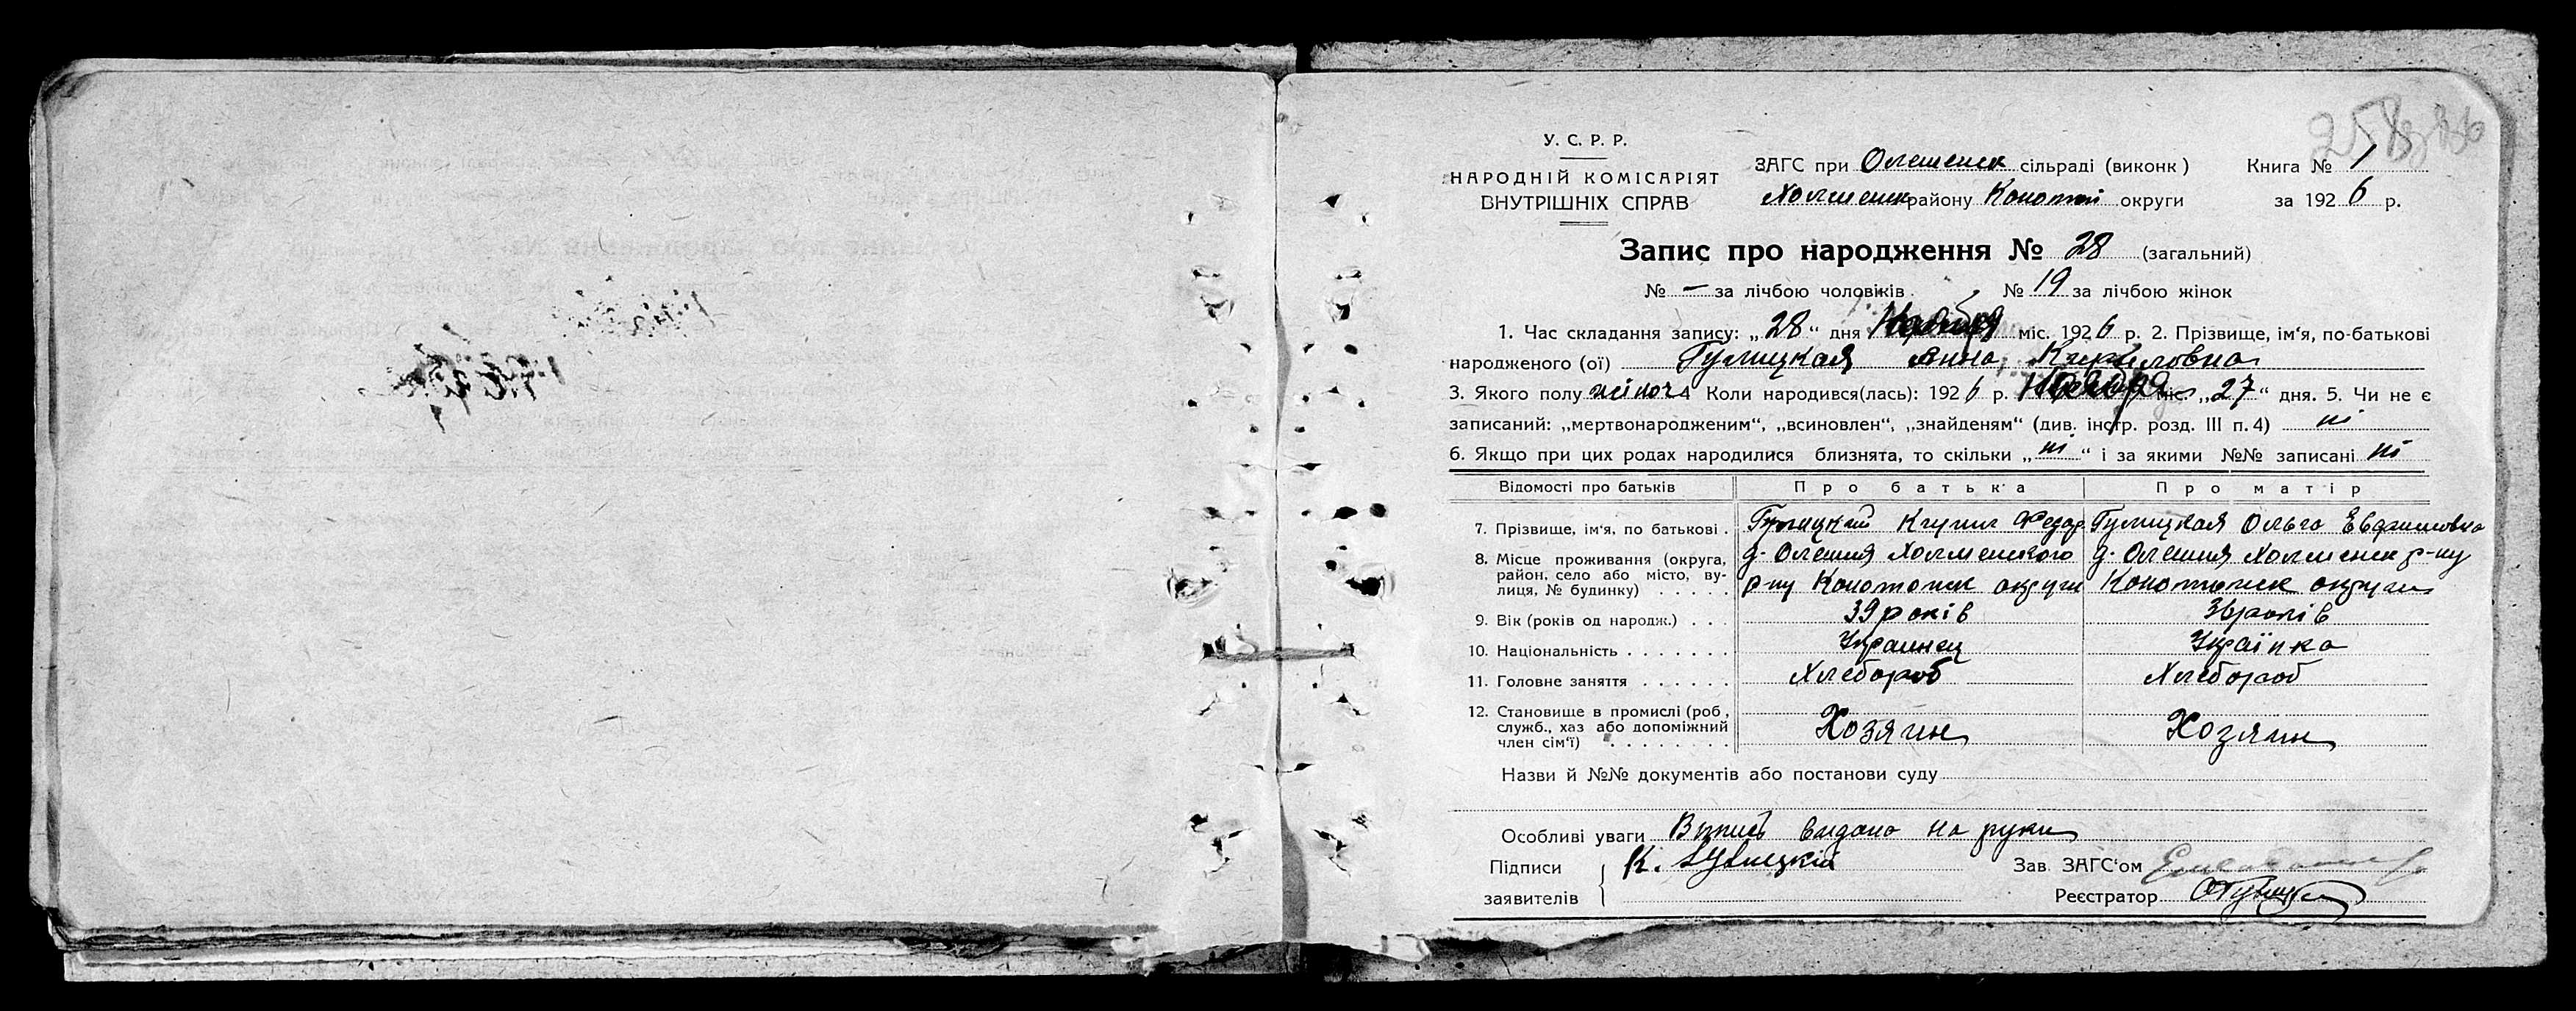 У. С. Р. Р.
НАРОДНІЙ КОМІСАРІЯТ
ВНУТРІШНІХ СПРАВ
ЗАГС при Олешенск сільраді (виконк)
Холменск району Коноти округи
Книга № 1
за 1926 р.
Запис про народження № 28 (загальний)
№ — за лічбою чоловіків № 19 за лічбою жінок
1. Час складання запису: „28“ дня міс. 1926 р. 2. Прізвище, ім‘я, по-батькові
народженого (ої) Гулицкая Анна Кириловна
3. Якого полу жіноч 4 Коли народився(лась): 1926 р. міс. „27“ дня. 5. Чи не є
записаний: „мертвонародженим“, „всиновлен“, „знайденям“ (див. інстр. розд. III п. 4) ні
6. Якщо при цих родах народилися близнята, то скільки „ні“ і за якими №№ записані ні
Відомості про батьків Про батька Про матір
7. Прізвище, ім‘я, по батькові . Гулицкий Кирил Федор. Гулицкая Ольга
8. Місце проживання (округа, район, село або місто, вулиця, № будинку) . . . . .
д. Олешня Холменского
р-ну Конотопск округи
д. Олешня Холменск р-ну
Конотопск округи
9. Вік (років од народж.) . . . 39 років 36 років
10. Національність . . . . . . . Украинец Україпка
11. Головне заняття . . . . . . Хлебороб Хлебороб
12. Становище в промислі (роб, служб., хаз або допоміжний член сім‘ї) . . . . . . . .
Хозяин Хозяин
Назви й №№ документів або постанови суду
Особливі уваги Випись видана на руки
Підписи заявителів
К. Гулицкій
Зав ЗАГС‘ом
Реєстратор ОГулицк